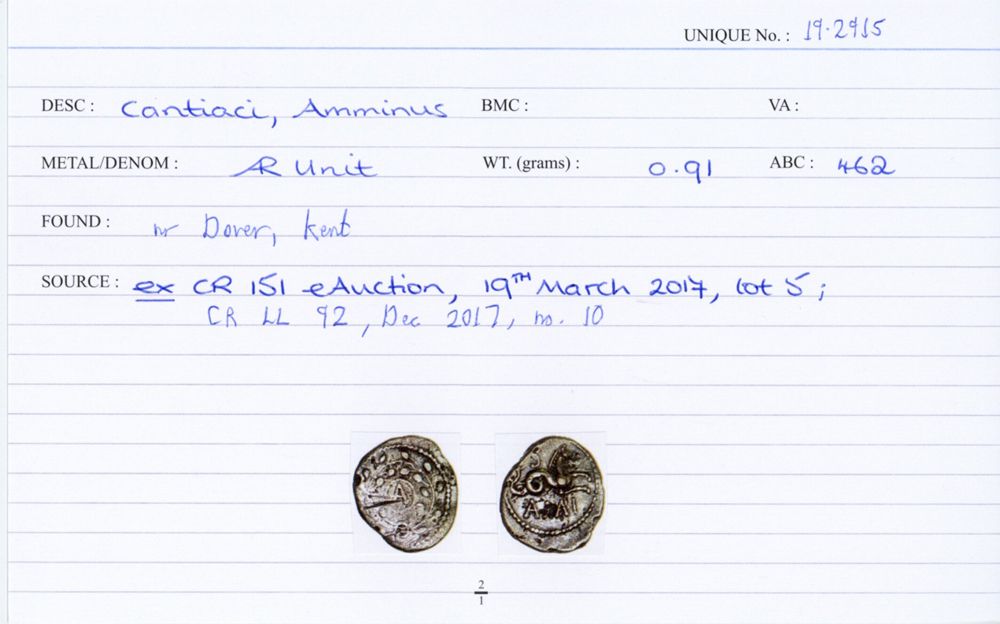 UNIQUE No. : 19.2915
DESC : Cantiaci, Amminus BMC : VA :
METAL/DENOM : AR Unit WT. (grams) : 0.91 ABC : 462
FOUND : nr Dover, Kent
SOURCE : ex CR 151 eAuction, 19TH March 2017, lot 5 ;
CR LL 92, Dec 2017, no. 10
A
2
1